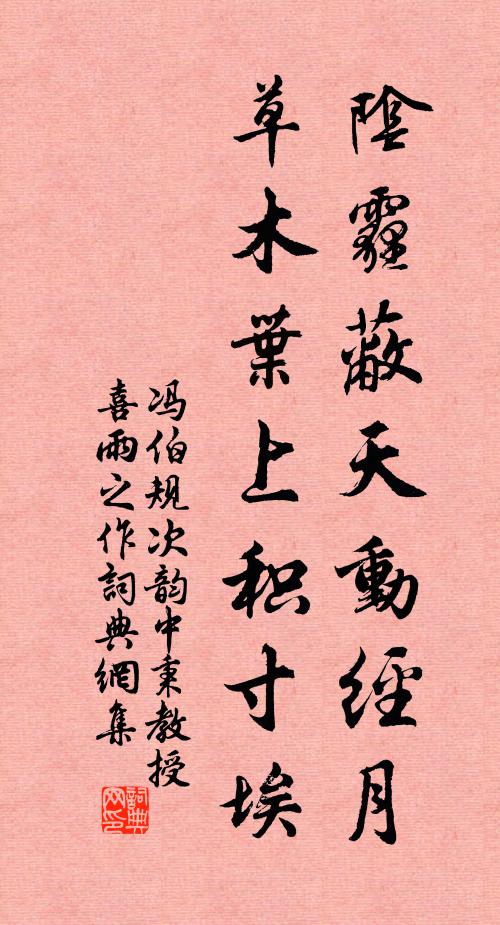 陰霾蔽天動經月
草木葉上积寸埃
冯伯規次韵中東教授
喜雨之作詞典網集
詞典网印